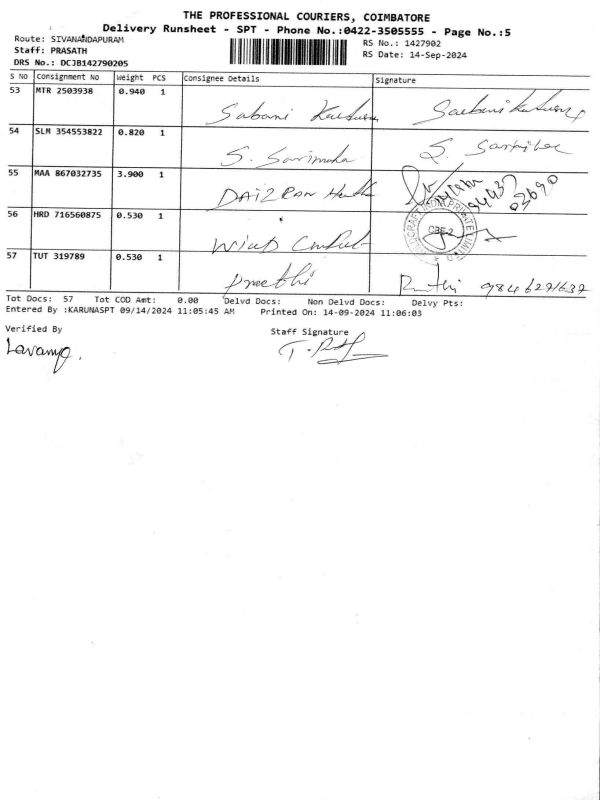 THE PROFESSIONAL COURIERS, COIMBATORE
Delivery Runsheet - SPT - Phone No.:0422-3505555 - Page No.:5
Route: SIVANANDAPURAM
RS No.: 1427902
Staff: PRASATH
RS Date: 14-Sep-2024
DRS No.: DCJB142790205
S NO Consignment No Weight PCS Consignee Details Signature
53 MTR 2503938 0.940 1 Sabani
54 SLM 354553822 0.820 1 S.
55 MAA 867032735 3.900 1
94437
03690
56 HRD 716560875 0.530 1
CBE-2
57 TUT 319789 0.530 1 Preethi
Tot Docs: 57 Tot COD Amt: 0.00 Delvd Docs: Non Delvd Docs: Delvy Pts:
Entered By :KARUNASPT 09/14/2024 11:05:45 AM Printed On: 14-09-2024 11:06:03
Verified By
Staff Signature